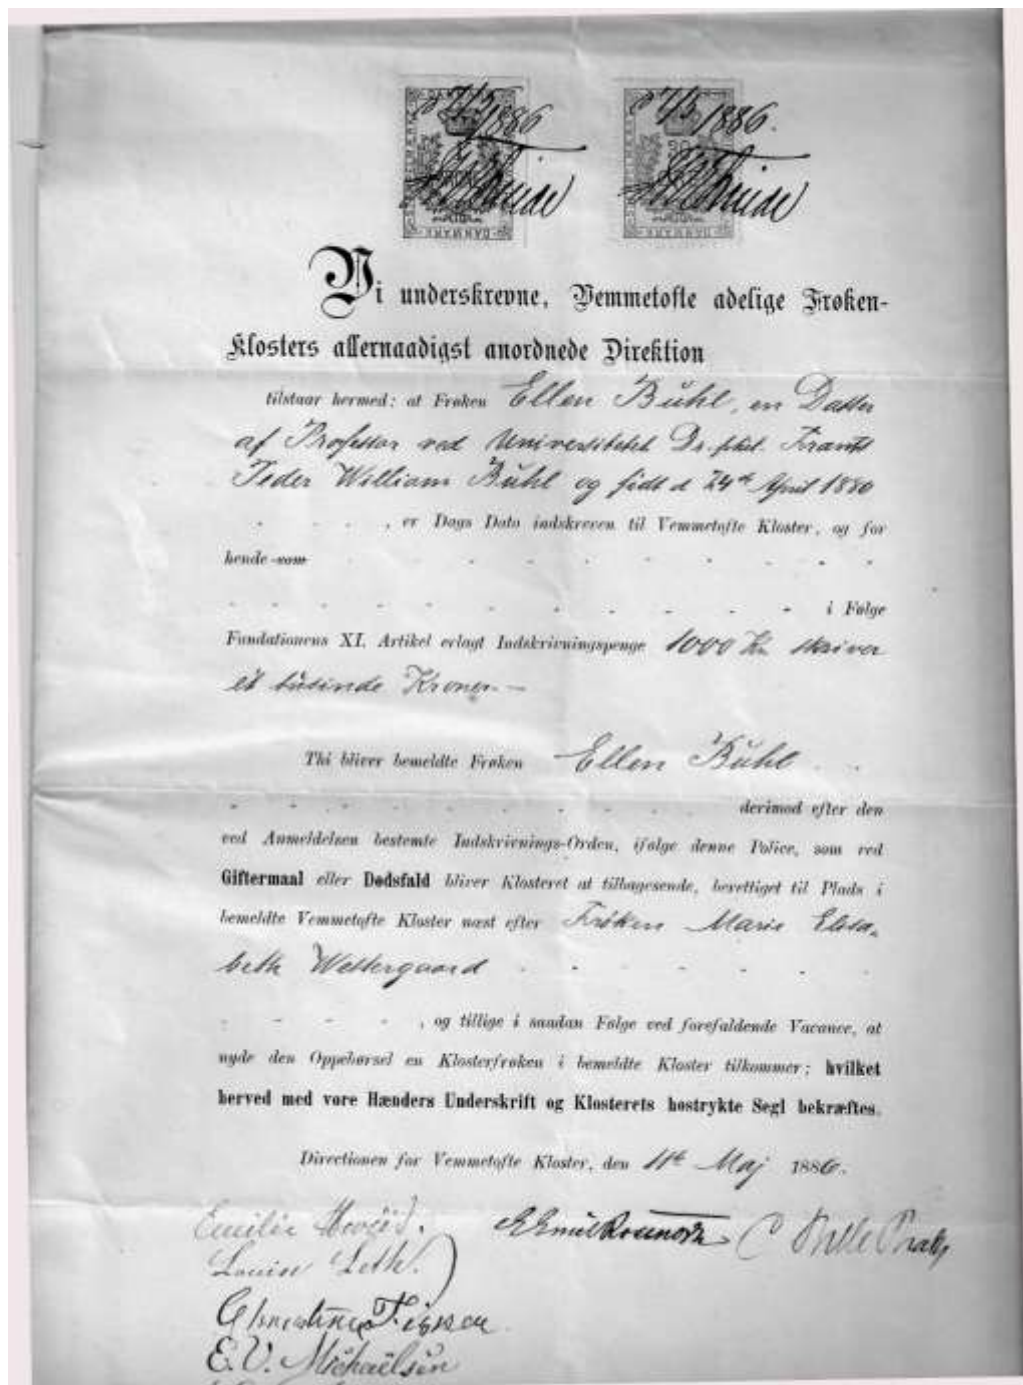 7/5 1886 7/5 1886.
DANMARK DANMARK
Vi underskrevne, Vemmetofte adelige Frøken-
Klosters allernaadigst anordnede Direktion
tilstaar hermed: at Frøken Ellen Buhl, en Datter
af Professor ved Universitetet Dr. phil. Frants
Peder William Buhl og født d 24de April 1880
, er Dags Dato indskreven til Vemmetofte Kloster, og for
hende som
i Følge
Fundationens XI. Artikel erlagt Indskrivningspenge 1000 Kr. skriver
et tusinde Kroner. —
Thi bliver bemeldte Frøken Ellen Buhl
derimod efter den
ved Anmeldelsen bestemte Indskrivnings-Orden, ifølge denne Police, som ved
Giftermaal eller Dødsfald bliver Klosteret at tilbagesende, berettiget til Plads i
bemeldte Vemmetofte Kloster næst efter Frøken Marie Elisa-
beth Westergaard
, og tillige i saadan Følge ved forefaldende Vacance, at
nyde den Oppebørsel en Klosterfrøken i bemeldte Kloster tilkommer; hvilket
herved med vore Hænders Underskrift og Klosterets hostrykte Segl bekræftes.
Directionen for Vemmetofte Kloster, den 11te Maj 1886.
Emilie
Louise Leth.
E. V. Michaëlsen